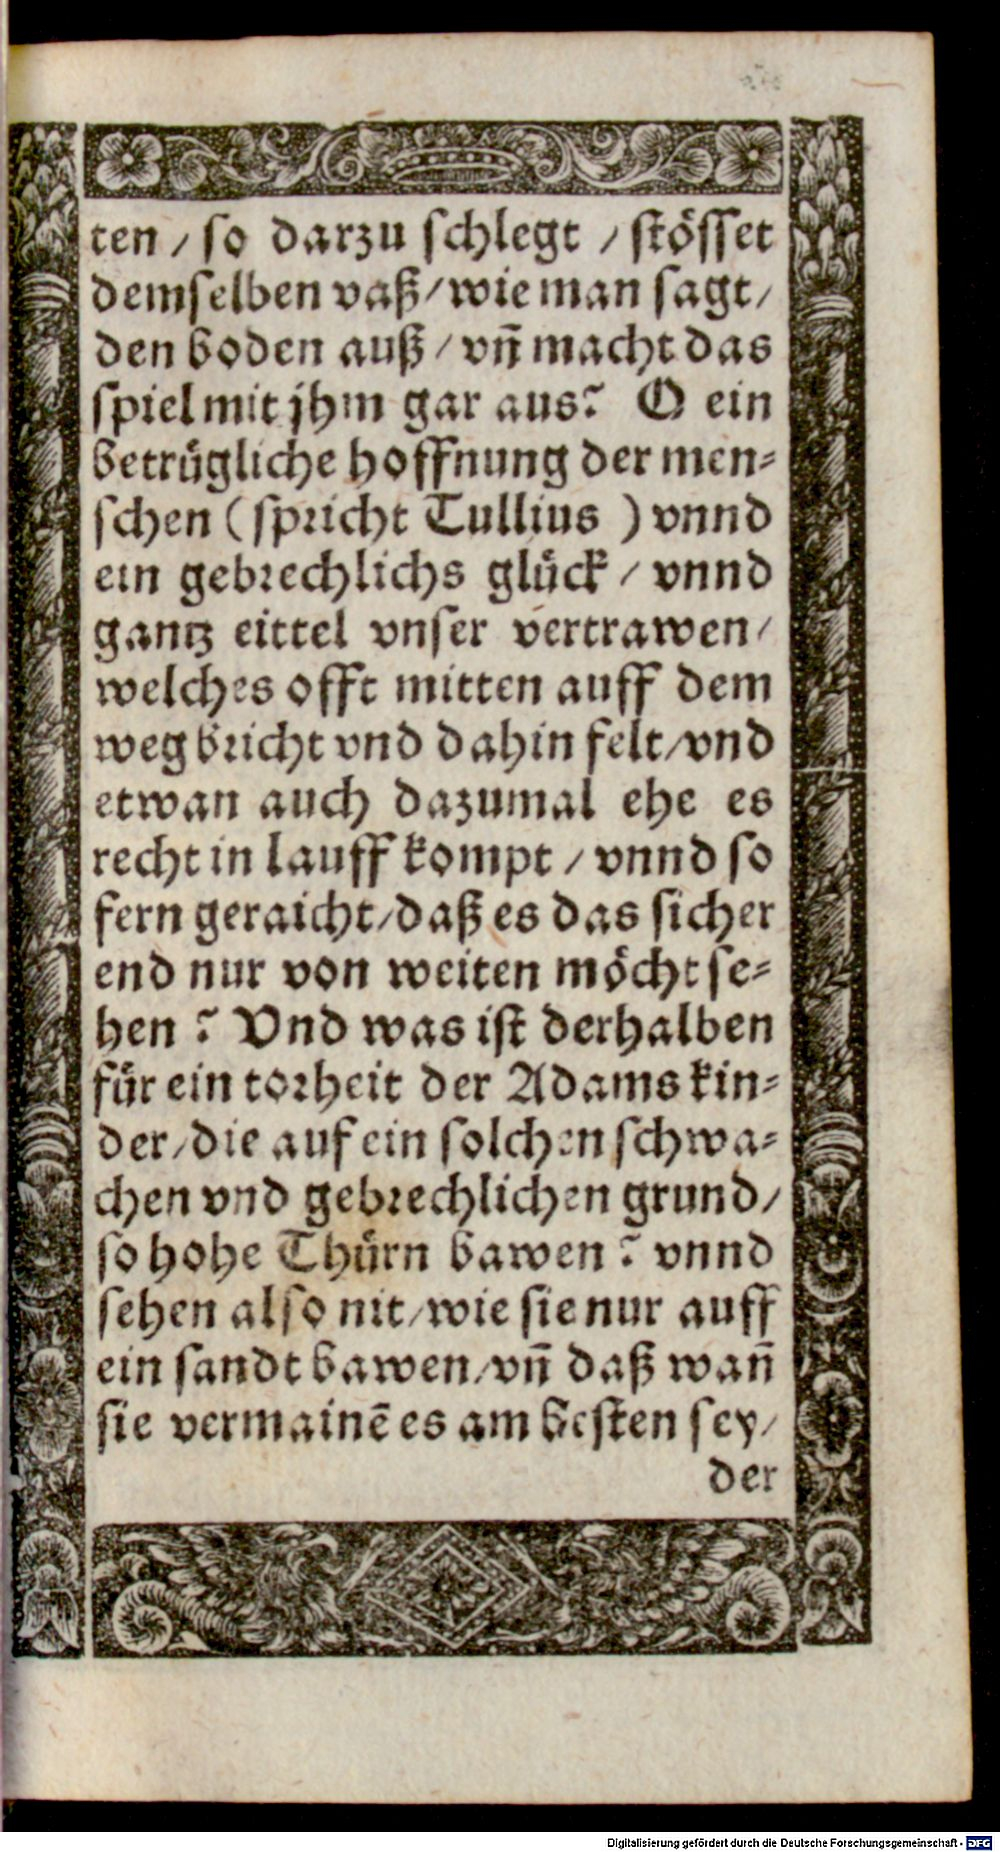 ten / so darzu schlegt / stösset
demselben vaß / wie man sagt /
den boden auß / vñ macht das
spiel mit jhm gar aus? O ein
betrügliche hoffnung der men-
schen ( spricht Tullius ) vnnd
ein gebrechlichs glück / vnnd
gantz eittel vnser vertrawen /
welches offt mitten auff dem
weg bricht vnd dahin felt / vnd
etwan auch dazumal ehe es
recht in lauff kompt / vnnd so
fern geraicht / daß es das sicher
end nur von weiten möcht se-
hen? Vnd was ist derhalben
für ein torheit der Adams kin-
der / die auf ein solchen schwa-
chen vnd gebrechlichen grund /
so hohe Thürn bawen? vnnd
sehen also nit / wie sie nur auff
ein sandt bawen / vñ daß wañ
sie vermainẽ es am besten sey /
der
Digitalisierung gefördert durch die Deutsche Forschungsgemeinschaft - DFG